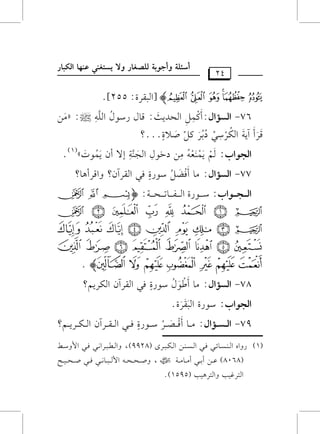 أسئلة وأجوبة للصغار ولا يستغني عنها الكبار
٢٤
يَـُٔودُهُۥ حِفْظُهُمَا ۚ وَهُوَ ٱلْعَلِىُّ ٱلْعَظِيمُ ﴾ [البقرة: ٢٥٥].
٧٦- السؤال: أَكْمِلِ الحديثَ: قال رسولُ اللَّهِ ﷺ: «مَن
قَرَأَ آيَةَ الكُرْسِيِّ دُبُرَ كلِّ صَلاةٍ...؟
الجواب: لَمْ يَمْنَعْهُ مِن دخولِ الجَنَّةِ إلا أن يَموتَ»(١).
٧٧- السؤال: ما أَفْضَلُ سورةٍ في القرآن؟ واقرأها؟
الـجـواب: سـورة الـفـاتـحـة: ﴿بِسْمِ ٱللَّهِ ٱلرَّحْمَٰنِ
ٱلرَّحِيمِ ۝١ ٱلْحَمْدُ لِلَّهِ رَبِّ ٱلْعَٰلَمِينَ ۝٢ ٱلرَّحْمَٰنِ
ٱلرَّحِيمِ ۝٣ مَٰلِكِ يَوْمِ ٱلدِّينِ ۝٤ إِيَّاكَ نَعْبُدُ وَإِيَّاكَ
نَسْتَعِينُ ۝٥ ٱهْدِنَا ٱلصِّرَٰطَ ٱلْمُسْتَقِيمَ ۝٦ صِرَٰطَ ٱلَّذِينَ
أَنْعَمْتَ عَلَيْهِمْ غَيْرِ ٱلْمَغْضُوبِ عَلَيْهِمْ وَلَا ٱلضَّآلِّينَ﴾.
٧٨- السؤال: ما أَطْوَلُ سورةٍ في القرآن الكريم؟
الجواب: سورة البَقَرَة.
٧٩- السـؤال: مـا أَقْـصَـرُ سـورةٍ فـي القـرآن الـكـريـم؟
(١) رواه النسائي في السنن الكبرى (٩٩٢٨)، والطبراني في الأوسط
(٨٠٦٨) عن أبي أمامة ﵁، وصححه الألباني في صحيح
الترغيب والترهيب (١٥٩٥).